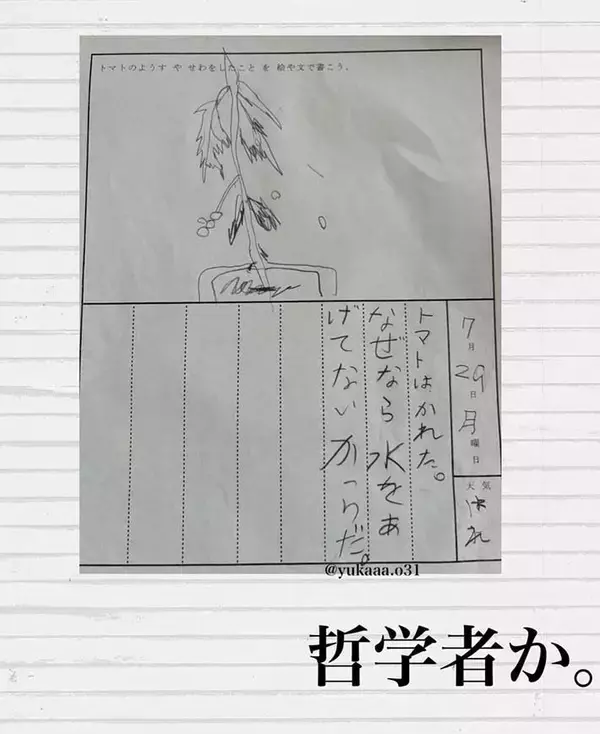 トマトのようす や せわをしたこと を 絵や文で書こう。
7月29日月曜日
天気 はれ
トマトはかれた。
なぜなら水をあ
げてないからだ。
@yukaaa.o31
哲学者か。